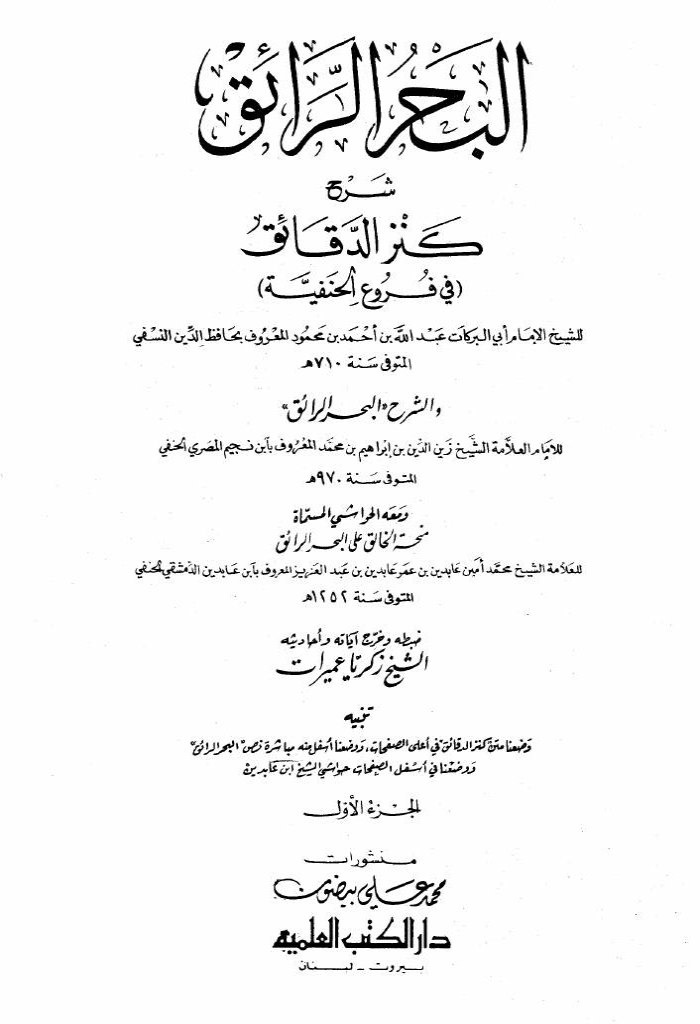 البَحْرُ الرَّائِق
شَرح
كَنْز الدَّقَائِق
(في فُرُوع الحَنَفِيَّة)
للشيخ الإمام أبي البركات عَبْد اللّه بن أحْمَد بن محمُود المعْرُوف بحَافظ الدِّين النسَفي
المتوفى سَنة ٧١٠هـ
والشرح «البحر الرائق»
للإمام العلاَّمة الشَّيخ زَين الدِّين بن إبراهيم بن محمَّد المعْرُوف بآبن نجيم المصري الحنفي
المتوفى سَنة ٩٧٠هـ
ومَعَه الحواشي المسمّاة
منحة الخالق على البحر الرائق
للعلاّمة الشيخ محمّد أمين عابدين بن عمر عابدين بن عبد العزيز المعروف بآبن عَابدين الدّمشقي الحنفي
المتوفى سَنة ١٢٥٢هـ
ضبطه وخرّج آياته وأحاديثه
الشيخ زكريا عميرات
تنبيه
وَضعنا متن كنز الدقائق في أعلى الصفحات، ووضعنا أسفل منه مباشرة نصّ "البحر الرائق"
ووضعْنا في أسْفل الصفحات حواشي الشيخ ابن عابدين
الجزء الأوّل
منشورات
محمد علي بيضون
دار الكتب العلمية
بيروت - لبنان